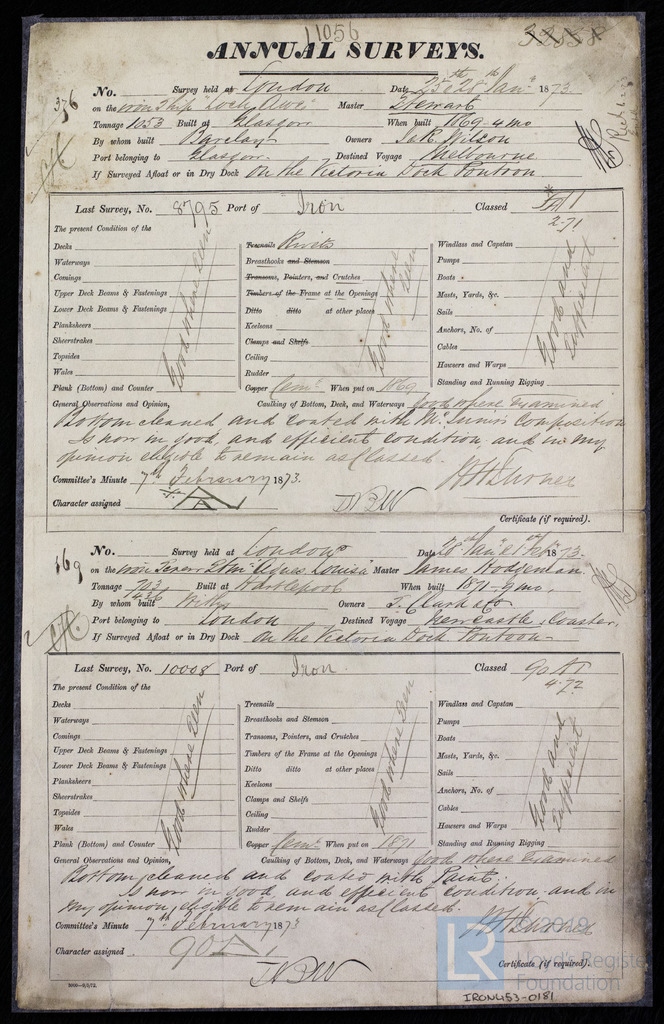 11056
ANNUAL SURVEYS.
No. Survey held at London Date 25th & 28th Jany. 1873
376 on the iron Ship "Loch Awe" Master Stewart
Tonnage 1053 Built at Glasgow When built 1869-4 mo
By whom built Barclay Owners J. & R. Wilson
Port belonging to Glasgow Destined Voyage Melbourne
If Surveyed Afloat or in Dry Dock On the Victoria Dock Pontoon
Last Survey, No. 8795 Port of Iron Classed
2.71
The present Condition of the
Decks
Waterways
Comings
Upper Deck Beams & Fastenings
Lower Deck Beams & Fastenings
Planksheers
Sheerstrakes
Topsides
Wales
Plank (Bottom) and Counter
Good where seen
Treenails Rivets
Breasthooks and Stemson
Transoms, Pointers, and Crutches
Timbers of the Frame at the Openings
Ditto ditto at other places
Keelsons
Clamps and Shelfs
Ceiling
Rudder
Copper Cemt. When put on 1869
Good where seen
Windlass and Capstan
Pumps
Boats
Masts, Yards, &c.
Sails
Anchors, No. of
Cables
Hawsers and Warps
Standing and Running Rigging
Good and sufficient
General Observations and Opinion, Caulking of Bottom, Deck, and Waterways Good where examined
Bottom cleaned and coated with composition
Is now in good, and efficient condition, and in my
opinion eligible to remain as Classed.
Committee's Minute 7th February 1873.
Character assigned
Certificate (if required).
No. Survey held at London Date 28th Jany & 1st Feb 1873
169 on the iron Screw Str "Agnes Louisa" Master James Hodgeman
Tonnage 703 Built at Hartlepool When built 1871-9 mo.
436
By whom built Withy Owners T. Clark & Co
Port belonging to London Destined Voyage Newcastle, Coaster,
If Surveyed Afloat or in Dry Dock On the Victoria Dock Pontoon
Last Survey, No. 10008 Port of Iron Classed 90 A1
4.72
The present Condition of the
Decks
Waterways
Comings
Upper Deck Beams & Fastenings
Lower Deck Beams & Fastenings
Planksheers
Sheerstrakes
Topsides
Wales
Plank (Bottom) and Counter
Good where seen
Treenails
Breasthooks and Stemson
Transoms, Pointers, and Crutches
Timbers of the Frame at the Openings
Ditto ditto at other places
Keelsons
Clamps and Shelfs
Ceiling
Rudder
Copper Cemt. When put on 1871
Good where seen
Windlass and Capstan
Pumps
Boats
Masts, Yards, &c.
Sails
Anchors, No. of
Cables
Hawsers and Warps
Standing and Running Rigging
Good and sufficient
General Observations and Opinion, Caulking of Bottom, Deck, and Waterways Good where examined
Bottom cleaned and coated with Paint.
Is now in good and efficient condition and in
my opinion, eligible to remain as Classed.
Committee's Minute 7th February 1873
Character assigned 90A
Certificate (if required).
LR © 2019
Lloyd's Register
Foundation
IRON453-0181